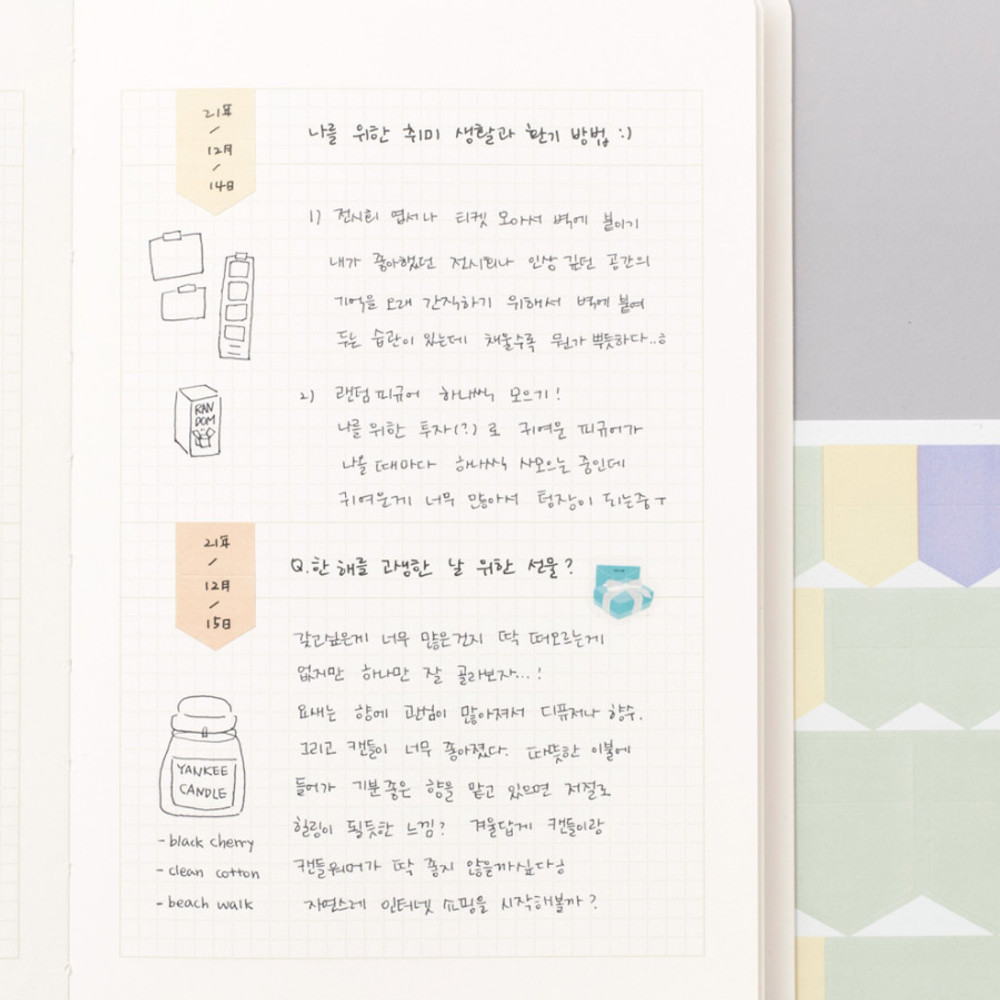 21年
/
12月
/
14日
나를 위한 취미 생활과 환기 방법 :)
1) 전시회 엽서나 티켓 모아서 벽에 붙이기
내가 좋아했던 전시회나 인상 깊던 공간의
기억을 오래 간직하기 위해서 벽에 붙여
두는 습관이 있는데 채울수록 뭔가 뿌듯하다..ㅎ
RAN
DOM
2) 랜덤 피규어 하나씩 모으기!
나를 위한 투자(?)로 귀여운 피규어가
나올 때마다 하나씩 사모으는 중인데
귀여운게 너무 많아서 텅장이 되는중ㅜ
21年
/
12月
/
15日
Q. 한 해를 고생한 날 위한 선물?
갖고싶은게 너무 많은건지 딱 떠오르는게
없지만 하나만 잘 골라보자...!
요새는 향에 관심이 많아져서 디퓨저나 향수.
그리고 캔들이 너무 좋아졌다. 따뜻한 이불에
들어가 기분좋은 향을 맡고 있으면 저절로
힐링이 될듯한 느낌? 겨울답게 캔들이랑
캔들워머가 딱 좋지 않을까싶다ㅎ
자연스레 인터넷 쇼핑을 시작해볼까?
YANKEE
CANDLE
- black cherry
- clean cotton
- beach walk